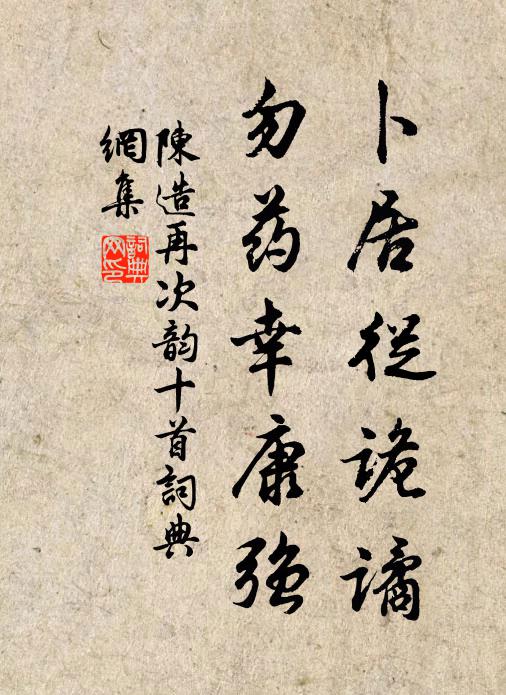 卜居從詭譎
勿药幸康强
陳造再次韵十首詞典
網集
詞典
网印